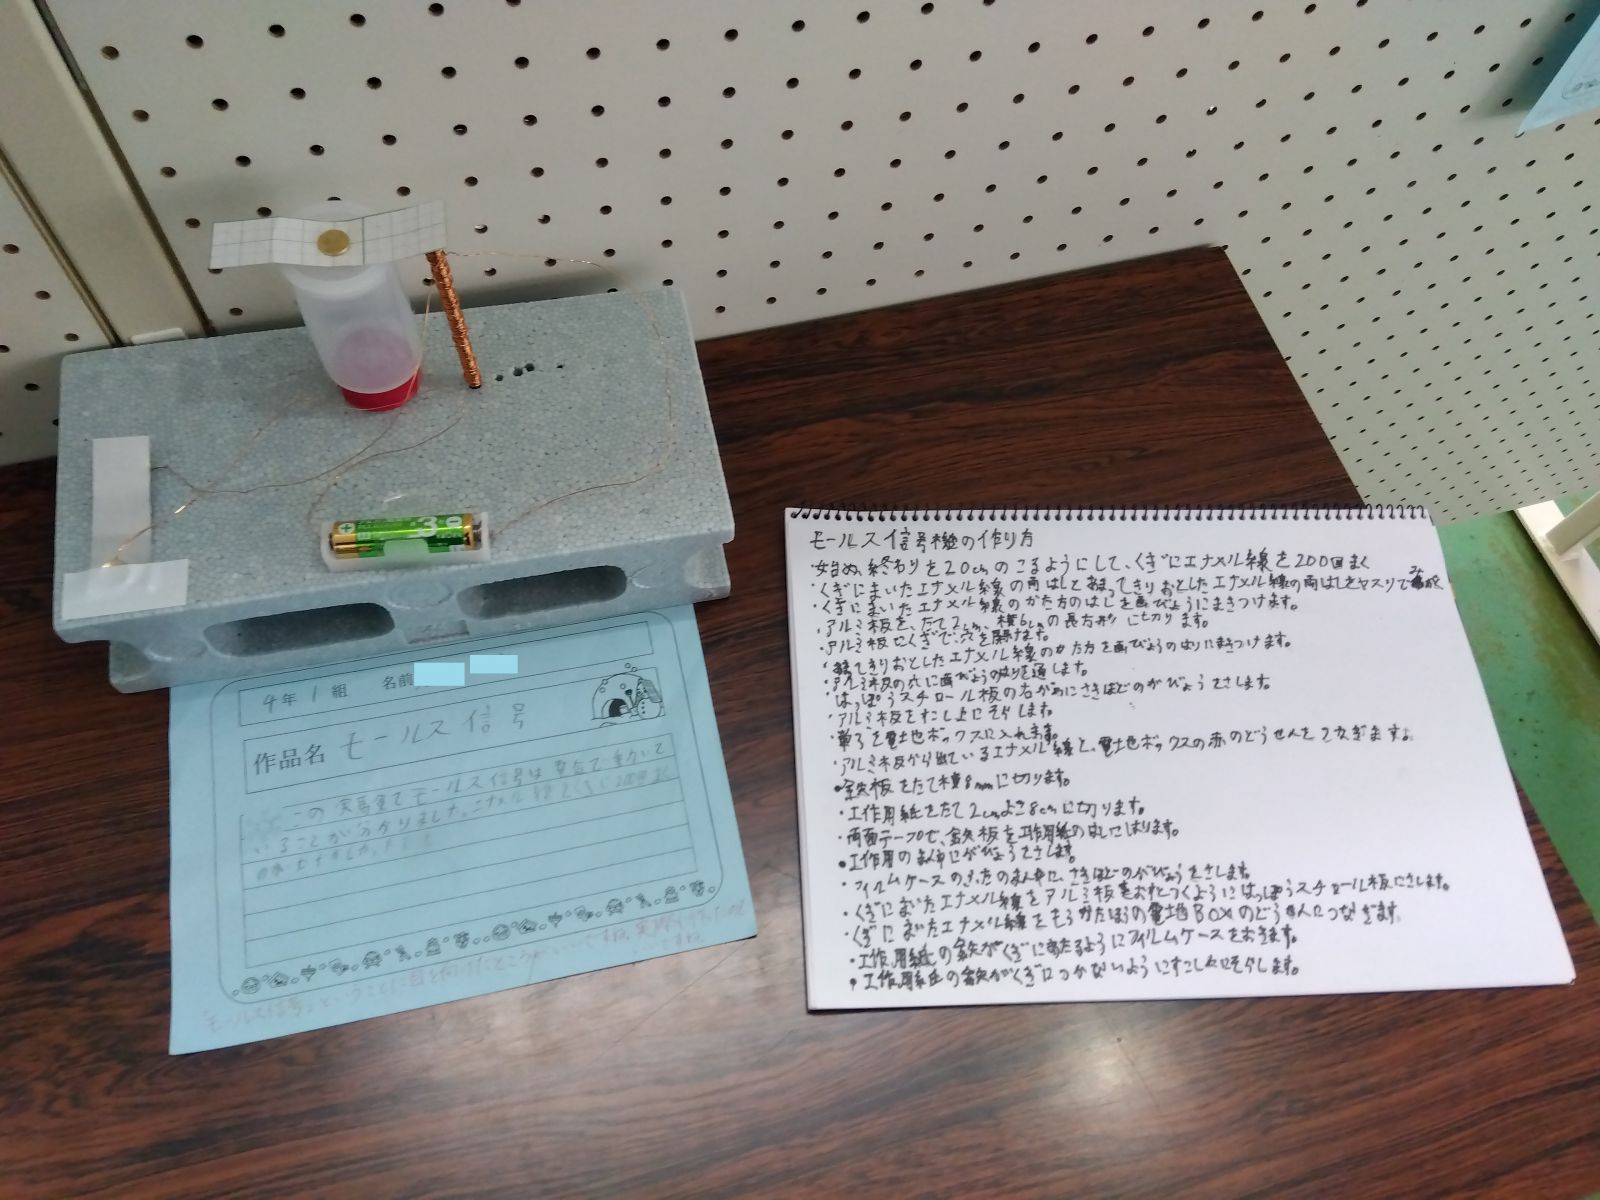 4年 1組 名前
作品名 モールス信号
この実験でモールス信号は電気で動いて
いることが分かりました。エナメル線をくぎに200回まく
「モールス信号」ということに目を付けたところがいいですね。実際に作ったのも
いいですね。
モールス信号機の作り方
・始め、終わりを20cmのこるようにして、くぎにエナメル線を200回まく
・くぎにまいたエナメル線の両はしとあまってきりおとしたエナメル線の両はしをヤスリで
・くぎにまいたエナメル線のかた方のはしを画びょうにまきつけます。
・アルミ板を、たて2cm、横6cmの長方形にしきります。
・アルミ板にくぎで、穴を開けます。
・きりおとしたエナメル線のかた方を画びょうのはりにまきつけます。
・アルミ板の穴に画びょうのはりを通します。
・はっぽうスチロール板の右がわにさきほどのがびょうをさします。
・アルミ板をすこし上にそらします。
・単3を電池ボックスに入れます。
・アルミ板から出ているエナメル線と、電池ボックスの赤のどうせんをつなぎます。
・鉄板をたて横8mmに切ります。
・工作用紙をたて2cmよこ8cmに切ります。
・両面テープで、鉄板を工作用紙のはしにはります。
・工作用のまん中にがびょうをさします。
・フィルムケースのふたのまん中に、さきほどのがびょうをさします。
・くぎにまいたエナメル線をアルミ板をおすとつくようにはっぽうスチロール板にさします。
・くぎにまいたエナメル線をもうかたほうの電池BOXのどうせんにつなぎます。
・工作用紙の鉄がくぎにあたるようにフィルムケースをおきます。
・工作用紙の鉄がくぎにつかないようにすこし上にそらします。